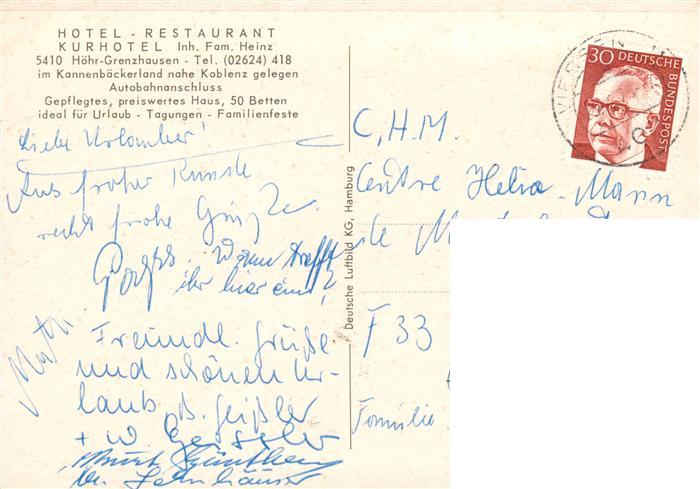 HOTEL - RESTAURANT
KURHOTEL Inh. Fam. Heinz
5410 Höhr-Grenzhausen - Tel. (02624) 418
im Kannenbäckerland nahe Koblenz gelegen
Autobahnanschluss
Gepflegtes, preiswertes Haus, 50 Betten
ideal für Urlaub - Tagungen - Familienfeste
Liebe Urlauber!
Aus froher Runde
recht frohe Grüße
wann trefft
ihr hier ein?
Freundl. Grüße
und schönen Ur-
laub B. Geißler
+ W Geissler
Deutsche Luftbild KG, Hamburg
30 DEUTSCHE BUNDESPOST
C.H.M.
Centre Helio-Marin
de
F 33
Familie